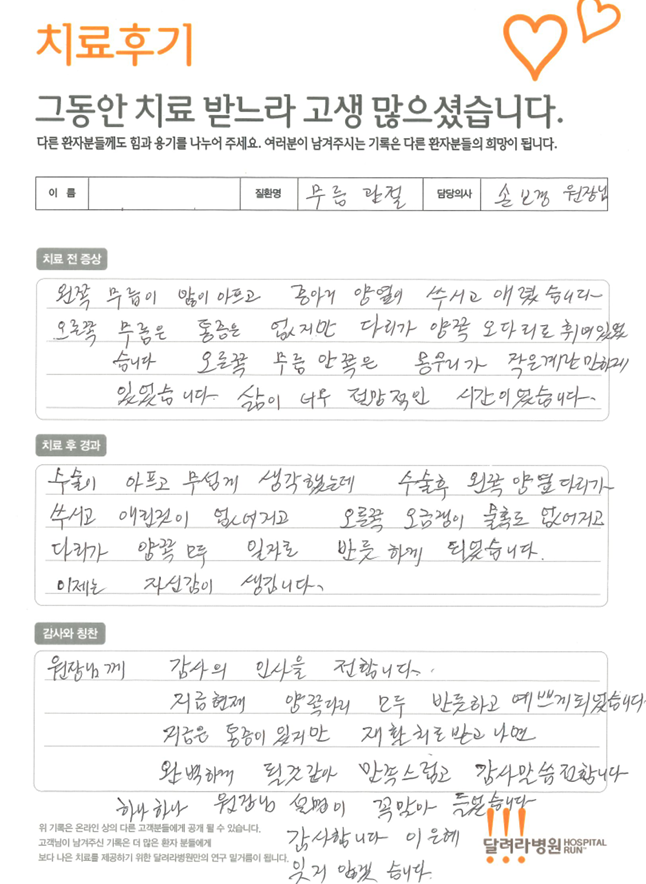 치료후기
그동안 치료 받느라 고생 많으셨습니다.
다른 환자분들께도 힘과 용기를 나누어 주세요. 여러분이 남겨주시는 기록은 다른 환자분들의 희망이 됩니다.
이 름 질환명 무릎 관절 담당의사 손보경 원장님
치료 전 증상
왼쪽 무릎이 많이 아프고 종아리 양옆이 쑤시고 애렸습니다
오른쪽 무릎은 통증은 없지만 다리가 양쪽 오다리로 휘여있었
습니다 오른쪽 무릎 안쪽은 몽우리가 작은계란만하게
있었습니다. 삶이 너무 절망적인 시간이였습니다.
치료 후 경과
수술이 아프고 무섭게 생각했는데 수술후 왼쪽 양옆다리가
쑤시고 애린것이 없어지고 오른쪽 오금쟁이 물혹도 없어지고
다리가 양쪽 모두 일자로 반듯하게 되었습니다.
이제는 자신감이 생깁니다.
감사와 칭찬
원장님께 감사의 인사을 전합니다.
지금현재 양쪽다리 모두 반듯하고 예쁘게되었습니다
지금은 통증이 있지만 재활치료받고나면
완벽하게 될것같아 만족스럽고 감사말씀전합니다
하나하나 원장님 설명이 꼭맞아 들었습니다
감사합니다 이 은혜
잊지 않겠습니다.
위 기록은 온라인 상의 다른 고객분들에게 공개 될 수 있습니다.
고객님이 남겨주신 기록은 더 많은 환자 분들에게
보다 나은 치료를 제공하기 위한 달려라병원만의 연구 밑거름이 됩니다.
달려라병원 HOSPITAL RUN